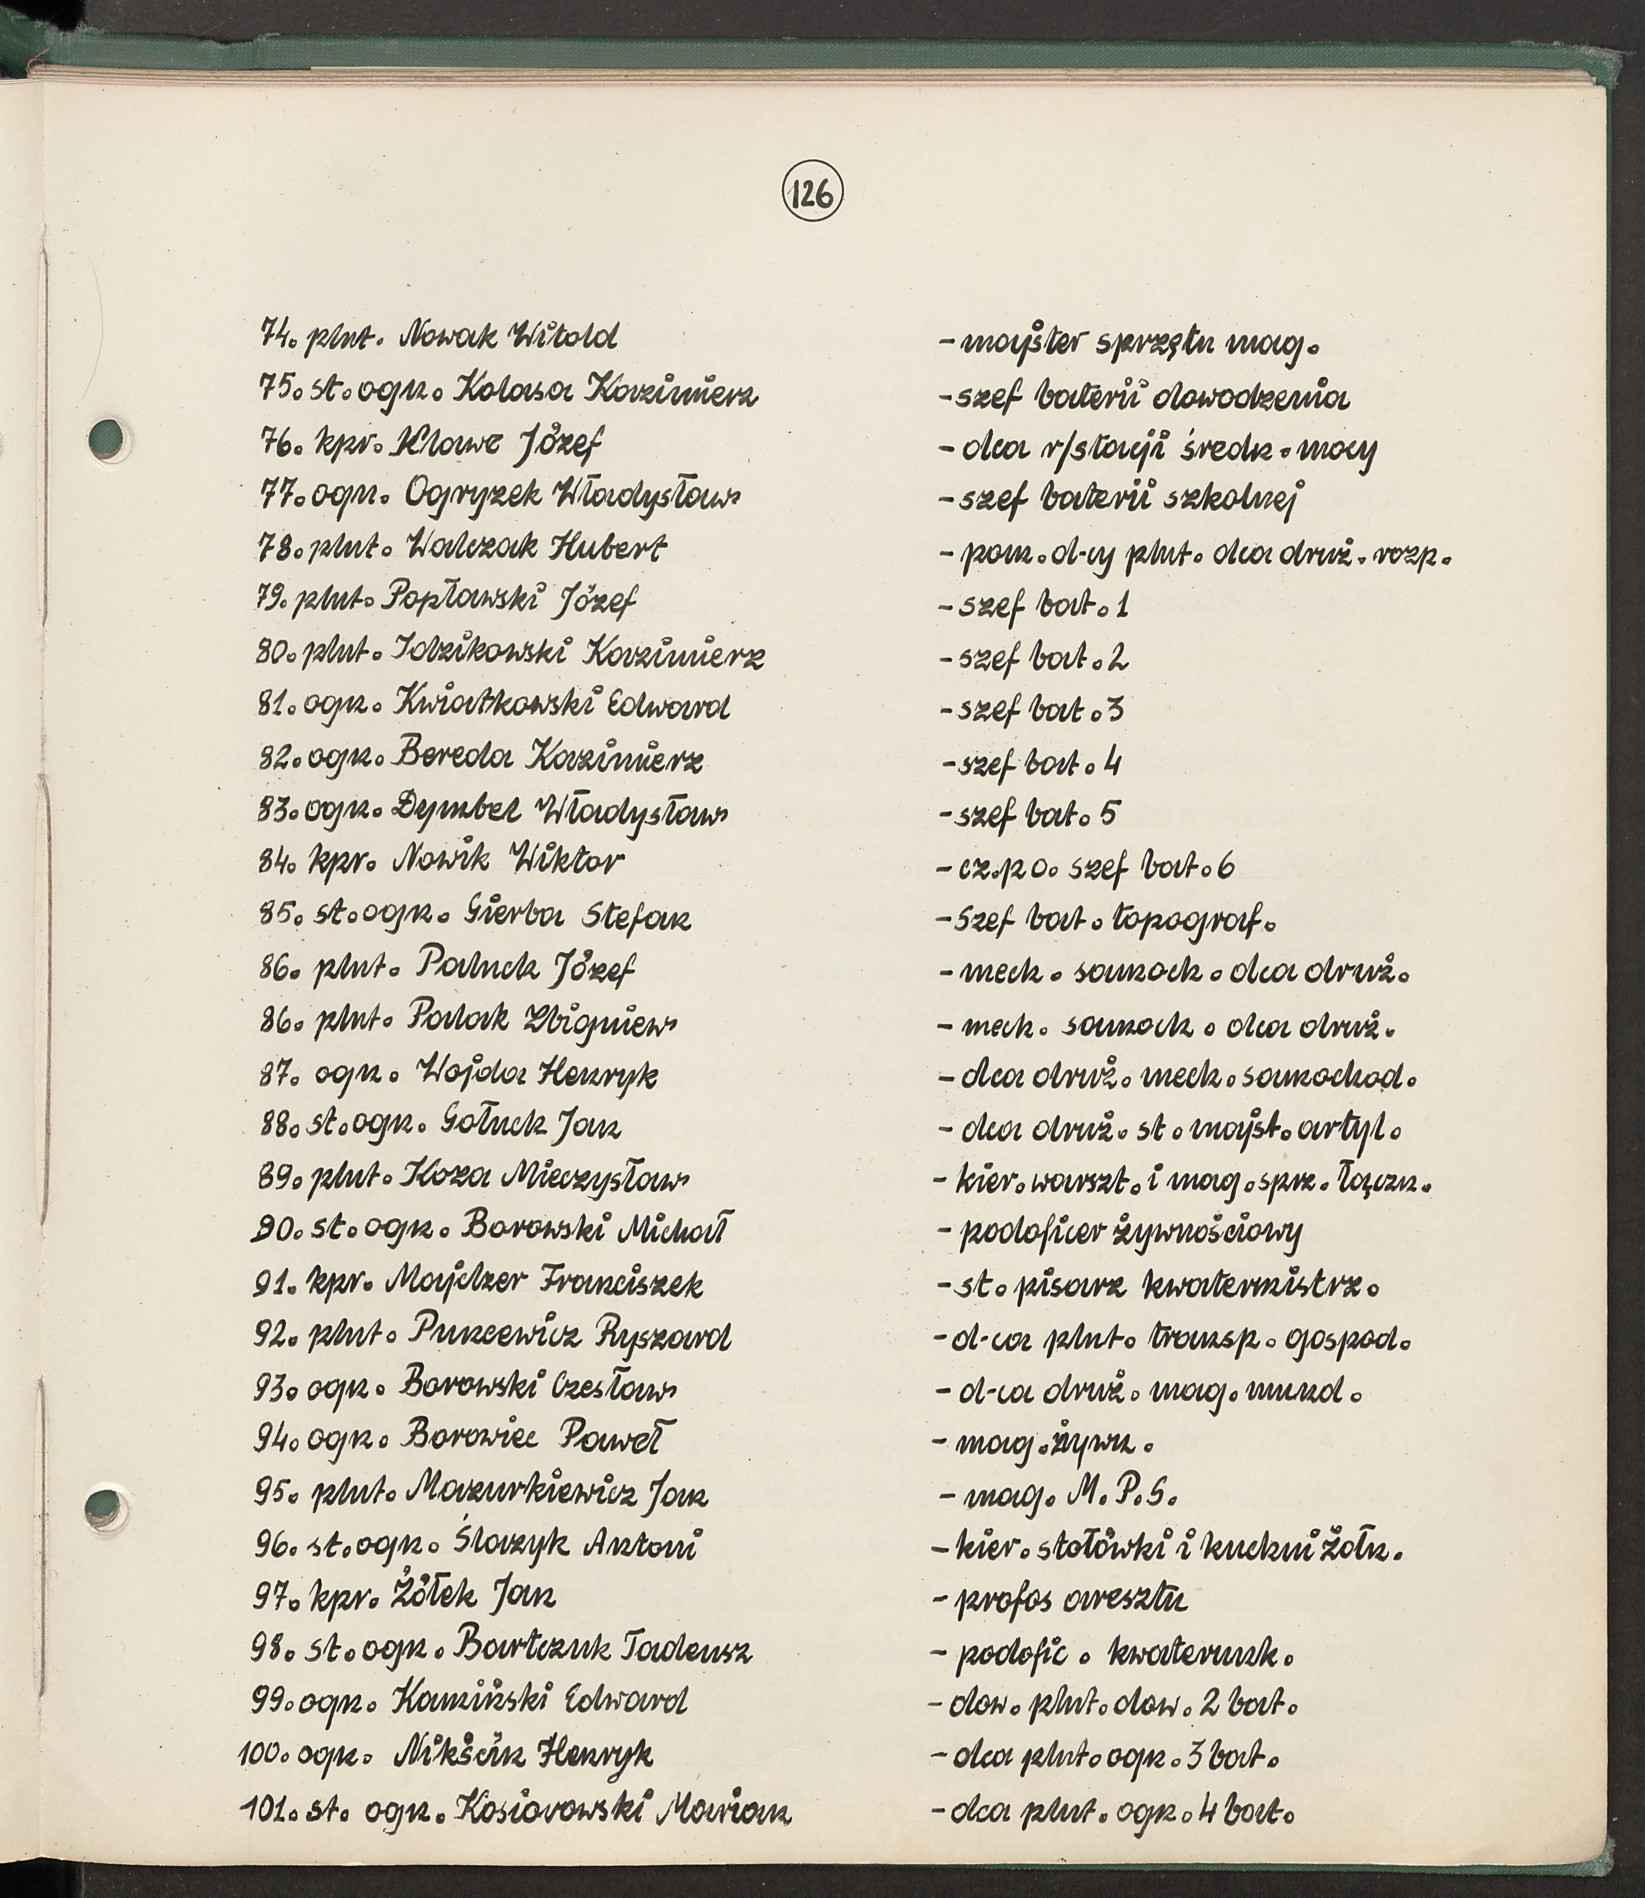 126
74. plut. Nowak Witold - majster sprzętu mag.
75. st. ogn. Kolasa Kazimierz - szef baterii dowodzenia
76. kpr. Klawe Józef - dca r/stacji średn. mocy
77. ogn. Ogryzek Władysław - szef baterii szkolnej
78. plut. Walczak Hubert - pom. d-cy plut. dca druż. rozp.
79. plut. Popławski Józef - szef bat. 1
80. plut. Idzikowski Kazimierz - szef bat. 2
81. ogn. Kwiatkowski Edward - szef bat. 3
82. ogn. Bereda Kazimierz - szef bat. 4
83. ogn. Dymbel Władysław - szef bat. 5
84. kpr. Nowik Wiktor - cz. p o. szef bat. 6
85. st. ogn. Gierba Stefan - szef bat. topograf.
86. plut. Paluch Józef - mech. samoch. dca druż.
86. plut. Palak Zbigniew - mech. samoch. dca druż.
87. ogn. Wojda Henryk - dca druż. mech. samochod.
88. st. ogn. Gołuch Jan - dca druż. st. majst. artyl.
89. plut. Koza Mieczysław - kier. warszt. i mag. sprz. łączn.
90. st. ogn. Borowski Michał - podoficer żywnościowy
91. kpr. Majcher Franciszek - st. pisarz kwatermistrz.
92. plut. Puncewicz Ryszard - d-ca plut. transp. gospod.
93. ogn. Borowski Czesław - d-ca druż. mag. mund.
94. ogn. Borowiec Paweł - mag. żywn.
95. plut. Mazurkiewicz Jan - mag. M. P. S.
96. st. ogn. Ślazyk Antoni - kier. stołówki i kuchni żołn.
97. kpr. Żółek Jan - profos aresztu
98. st. ogn. Bartczuk Tadeusz - podofic. kwaterunk.
99. ogn. Kamiński Edward - dow. plut. dow. 2 bat.
100. ogn. Nikścin Henryk - dca plut. ogn. 3 bat.
101. st. ogn. Kosiorowski Marian - dca plut. ogn. 4 bat.